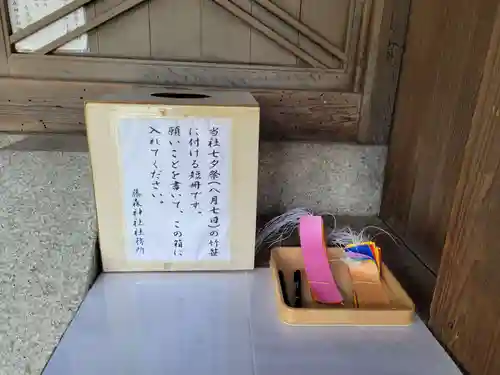 当社七夕祭(八月七日)の竹笹
に付ける短冊です。
願いごとを書いて、この箱に
入れてください。
藤森神社社務所